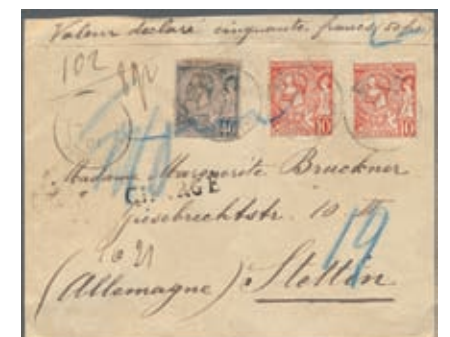 Valeur declaré cinquante francs (50 frs)
102
8gr
40
10
10
Madame Marguerite Bruckner
CHARGÉ
Giesebrechtstr. 10
(Allemagne) Stettin
19